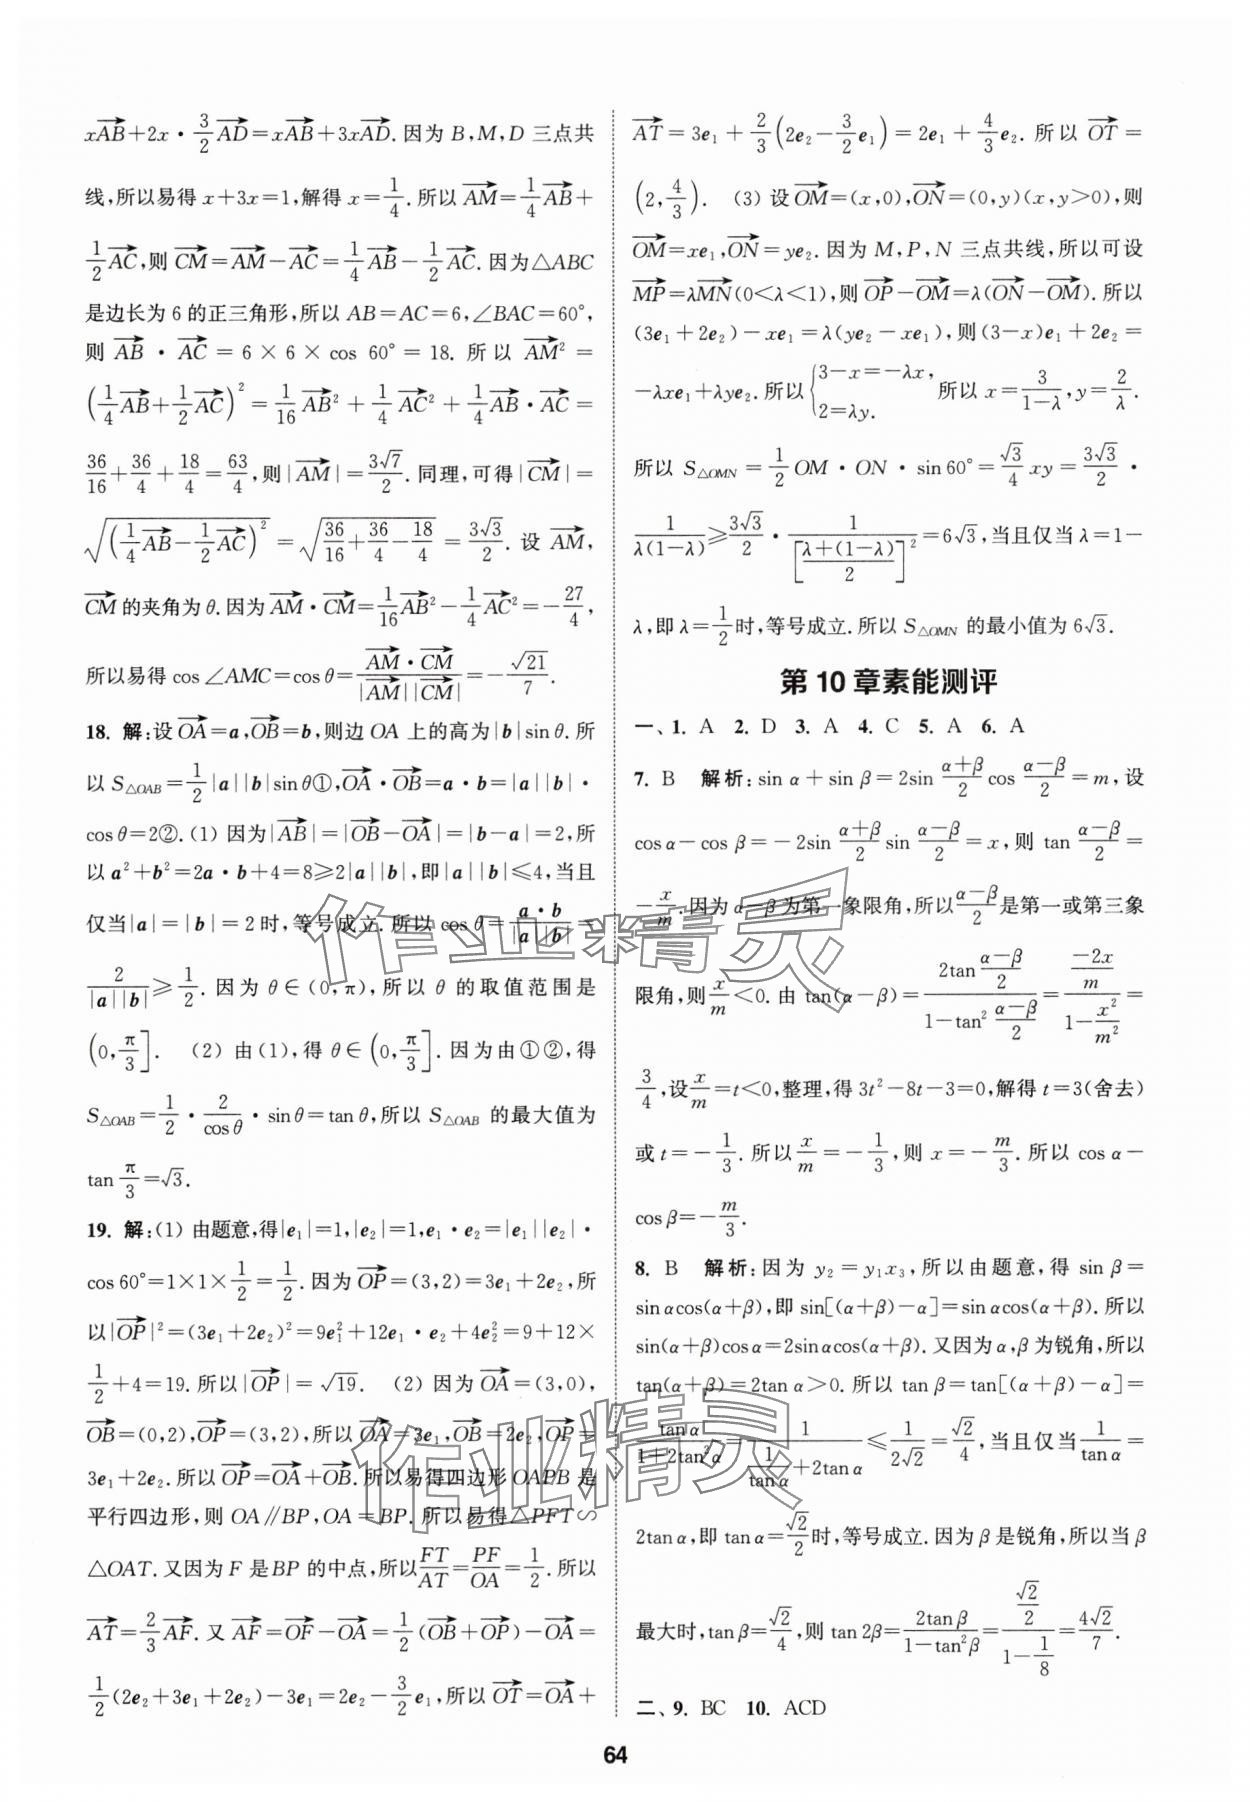 x\overrightarrow{AB}+2x·\frac{3}{2}\overrightarrow{AD}=x\overrightarrow{AB}+3x\overrightarrow{AD}.因为 B,M,D 三点共
线,所以易得 x+3x=1,解得 x=\frac{1}{4}.所以\overrightarrow{AM}=\frac{1}{4}\overrightarrow{AB}+
\frac{1}{2}\overrightarrow{AC},则\overrightarrow{CM}=\overrightarrow{AM}-\overrightarrow{AC}=\frac{1}{4}\overrightarrow{AB}-\frac{1}{2}\overrightarrow{AC}.因为△ABC
是边长为 6 的正三角形,所以 AB=AC=6,∠BAC=60°,
则 \overrightarrow{AB}·\overrightarrow{AC}=6×6×cos 60°=18.所以 \overrightarrow{AM}^2=
(\frac{1}{4}\overrightarrow{AB}+\frac{1}{2}\overrightarrow{AC})^2=\frac{1}{16}\overrightarrow{AB}^2+\frac{1}{4}\overrightarrow{AC}^2+\frac{1}{4}\overrightarrow{AB}·\overrightarrow{AC}=
\frac{36}{16}+\frac{36}{4}+\frac{18}{4}=\frac{63}{4},则|\overrightarrow{AM}|=\frac{3\sqrt{7}}{2}.同理,可得|\overrightarrow{CM}|=
\sqrt{(\frac{1}{4}\overrightarrow{AB}-\frac{1}{2}\overrightarrow{AC})^2}=\sqrt{\frac{36}{16}+\frac{36}{4}-\frac{18}{4}}=\frac{3\sqrt{3}}{2}.设 \overrightarrow{AM},
\overrightarrow{CM}的夹角为θ.因为\overrightarrow{AM}·\overrightarrow{CM}=\frac{1}{16}\overrightarrow{AB}^2-\frac{1}{4}\overrightarrow{AC}^2=-\frac{27}{4},
所以易得 cos∠AMC=cosθ=\frac{\overrightarrow{AM}·\overrightarrow{CM}}{|\overrightarrow{AM}||\overrightarrow{CM}|}=-\frac{\sqrt{21}}{7}.
18. 解:设\overrightarrow{OA}=a,\overrightarrow{OB}=b,则边 OA 上的高为|b|sinθ.所
以 S_{△OAB}=\frac{1}{2}|a||b|sinθ①,\overrightarrow{OA}·\overrightarrow{OB}=a·b=|a||b|·
cosθ=2②.(1) 因为|\overrightarrow{AB}|=|\overrightarrow{OB}-\overrightarrow{OA}|=|b-a|=2,所
以 a^2+b^2=2a·b+4=8≥2|a||b|,即|a||b|≤4,当且
仅当|a|=|b|=2 时,等号成立.所以 cosθ=\frac{a·b}{|a||b|}=
\frac{2}{|a||b|}≥\frac{1}{2}.因为 θ∈(0,π),所以 θ 的取值范围是
(0,\frac{π}{3}]. (2) 由(1),得 θ∈(0,\frac{π}{3}].因为由①②,得
S_{△OAB}=\frac{1}{2}·\frac{2}{cosθ}·sinθ=tanθ,所以 S_{△OAB} 的最大值为
tan\frac{π}{3}=\sqrt{3}.
19. 解:(1) 由题意,得|e_1|=1,|e_2|=1,e_1·e_2=|e_1||e_2|·
cos60°=1×1×\frac{1}{2}=\frac{1}{2}.因为\overrightarrow{OP}=(3,2)=3e_1+2e_2,所
以|\overrightarrow{OP}|^2=(3e_1+2e_2)^2=9e_1^2+12e_1·e_2+4e_2^2=9+12×
\frac{1}{2}+4=19.所以|\overrightarrow{OP}|=\sqrt{19}. (2) 因为\overrightarrow{OA}=(3,0),
\overrightarrow{OB}=(0,2),\overrightarrow{OP}=(3,2),所以\overrightarrow{OA}=3e_1,\overrightarrow{OB}=2e_2,\overrightarrow{OP}=
3e_1+2e_2.所以\overrightarrow{OP}=\overrightarrow{OA}+\overrightarrow{OB}.所以易得四边形 OAPB 是
平行四边形,则 OA∥BP,OA=BP.所以易得△PFT∽
△OAT.又因为 F 是BP 的中点,所以\frac{FT}{AT}=\frac{PF}{OA}=\frac{1}{2}.所以
\overrightarrow{AT}=\frac{2}{3}\overrightarrow{AF}.又\overrightarrow{AF}=\overrightarrow{OF}-\overrightarrow{OA}=\frac{1}{2}(\overrightarrow{OB}+\overrightarrow{OP})-\overrightarrow{OA}=
\frac{1}{2}(2e_2+3e_1+2e_2)-3e_1=2e_2-\frac{3}{2}e_1,所以\overrightarrow{OT}=\overrightarrow{OA}+
\overrightarrow{AT}=3e_1+\frac{2}{3}(2e_2-\frac{3}{2}e_1)=2e_1+\frac{4}{3}e_2.所以\overrightarrow{OT}=
(2,\frac{4}{3}). (3) 设\overrightarrow{OM}=(x,0),\overrightarrow{ON}=(0,y)(x,y>0),则
\overrightarrow{OM}=xe_1,\overrightarrow{ON}=ye_2.因为 M,P,N 三点共线,所以可设
\overrightarrow{MP}=λ\overrightarrow{MN}(0<λ<1),则\overrightarrow{OP}-\overrightarrow{OM}=λ(\overrightarrow{ON}-\overrightarrow{OM}).所以
(3e_1+2e_2)-xe_1=λ(ye_2-xe_1),则(3-x)e_1+2e_2=
-λxe_1+λye_2.所以{3-x=-λx, 2=λy. 所以 x=\frac{3}{1-λ},y=\frac{2}{λ}.
所以 S_{△OMN}=\frac{1}{2}OM·ON·sin60°=\frac{\sqrt{3}}{4}xy=\frac{3\sqrt{3}}{2}·
\frac{1}{λ(1-λ)}≥\frac{3\sqrt{3}}{2}·\frac{1}{[\frac{λ+(1-λ)}{2}]^2}=6\sqrt{3},当且仅当λ=1-
λ,即λ=\frac{1}{2}时,等号成立.所以 S_{△OMN} 的最小值为 6\sqrt{3}.
第 10 章素能测评
一、1. A 2. D 3. A 4. C 5. A 6. A
7. B 解析:sinα+sinβ=2sin\frac{α+β}{2}cos\frac{α-β}{2}=m,设
cosα-cosβ=-2sin\frac{α+β}{2}sin\frac{α-β}{2}=x,则 tan\frac{α-β}{2}=
-\frac{x}{m}.因为α-β为第一象限角,所以\frac{α-β}{2}是第一或第三象
限角,则\frac{x}{m}<0.由 tan(α-β)=\frac{2tan\frac{α-β}{2}}{1-tan^2\frac{α-β}{2}}=\frac{\frac{-2x}{m}}{1-\frac{x^2}{m^2}}=
\frac{3}{4},设\frac{x}{m}=t<0,整理,得 3t^2-8t-3=0,解得 t=3(舍去)
或 t=-\frac{1}{3}.所以\frac{x}{m}=-\frac{1}{3},则 x=-\frac{m}{3}.所以 cosα-
cosβ=-\frac{m}{3}.
8. B 解析:因为 y_2=y_1x_3,所以由题意,得 sinβ=
sinαcos(α+β),即 sin[(α+β)-α]=sinαcos(α+β).所以
sin(α+β)cosα=2sinαcos(α+β).又因为α,β为锐角,所以
tan(α+β)=2tanα>0.所以 tanβ=tan[(α+β)-α]=
\frac{tanα}{1+2tan^2α}=\frac{1}{\frac{1}{tanα}+2tanα}≤\frac{1}{2\sqrt{2}}=\frac{\sqrt{2}}{4},当且仅当\frac{1}{tanα}=
2tanα,即 tanα=\frac{\sqrt{2}}{2}时,等号成立.因为β是锐角,所以当β
最大时,tanβ=\frac{\sqrt{2}}{4},则 tan2β=\frac{2tanβ}{1-tan^2β}=\frac{\frac{\sqrt{2}}{2}}{1-\frac{1}{8}}=\frac{4\sqrt{2}}{7}.
二、9. BC 10. ACD
64
作业精灵
作业精灵